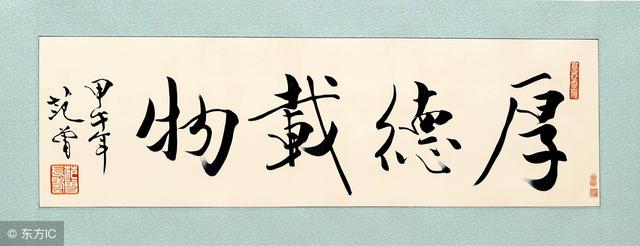 厚德載物
甲午年
范曾
© 东方IC